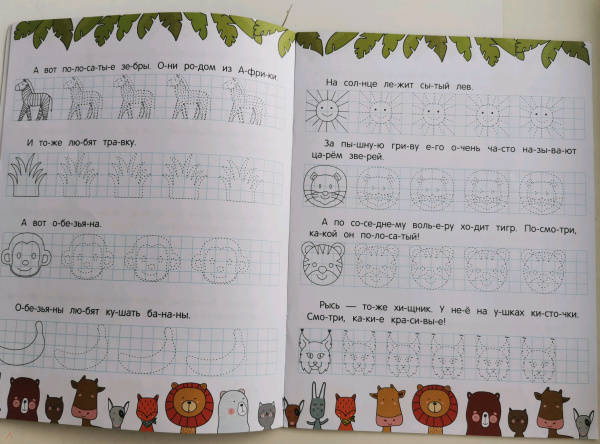 А вот по-ло-са-ты-е зе-бры. О-ни ро-дом из А-фри-ки.
И то-же лю-бят трав-ку.
А вот о-бе-зья-на.
О-бе-зья-ны лю-бят ку-шать ба-на-ны.
На сол-нце ле-жит сы-тый лев.
За пы-шну-ю гри-ву е-го о-чень ча-сто на-зы-ва-ют
ца-рём зве-рей.
А по со-се-дне-му воль-е-ру хо-дит тигр. По-смо-три,
ка-кой он по-ло-са-тый!
Рысь — то-же хи-щник. У не-ё на у-шках ки-сто-чки.
Смо-три, ка-ки-е кра-си-вы-е!